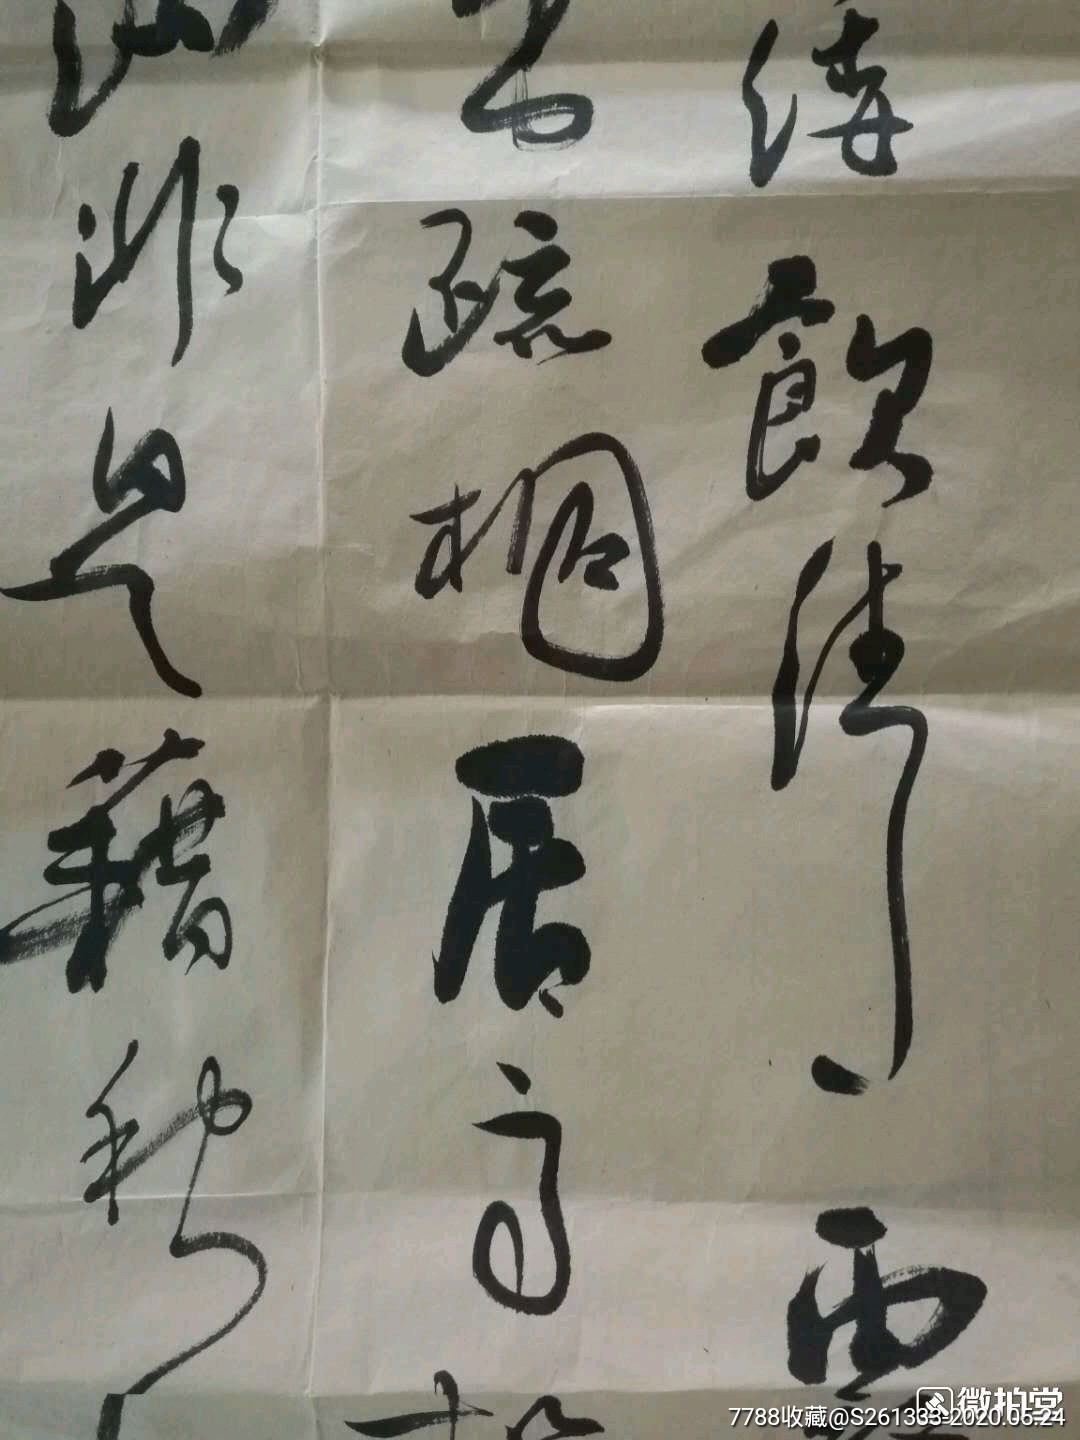 緌飲清露
疏桐居高
非是藉秋
微拍堂
7788收藏@S261333-2020.05.24